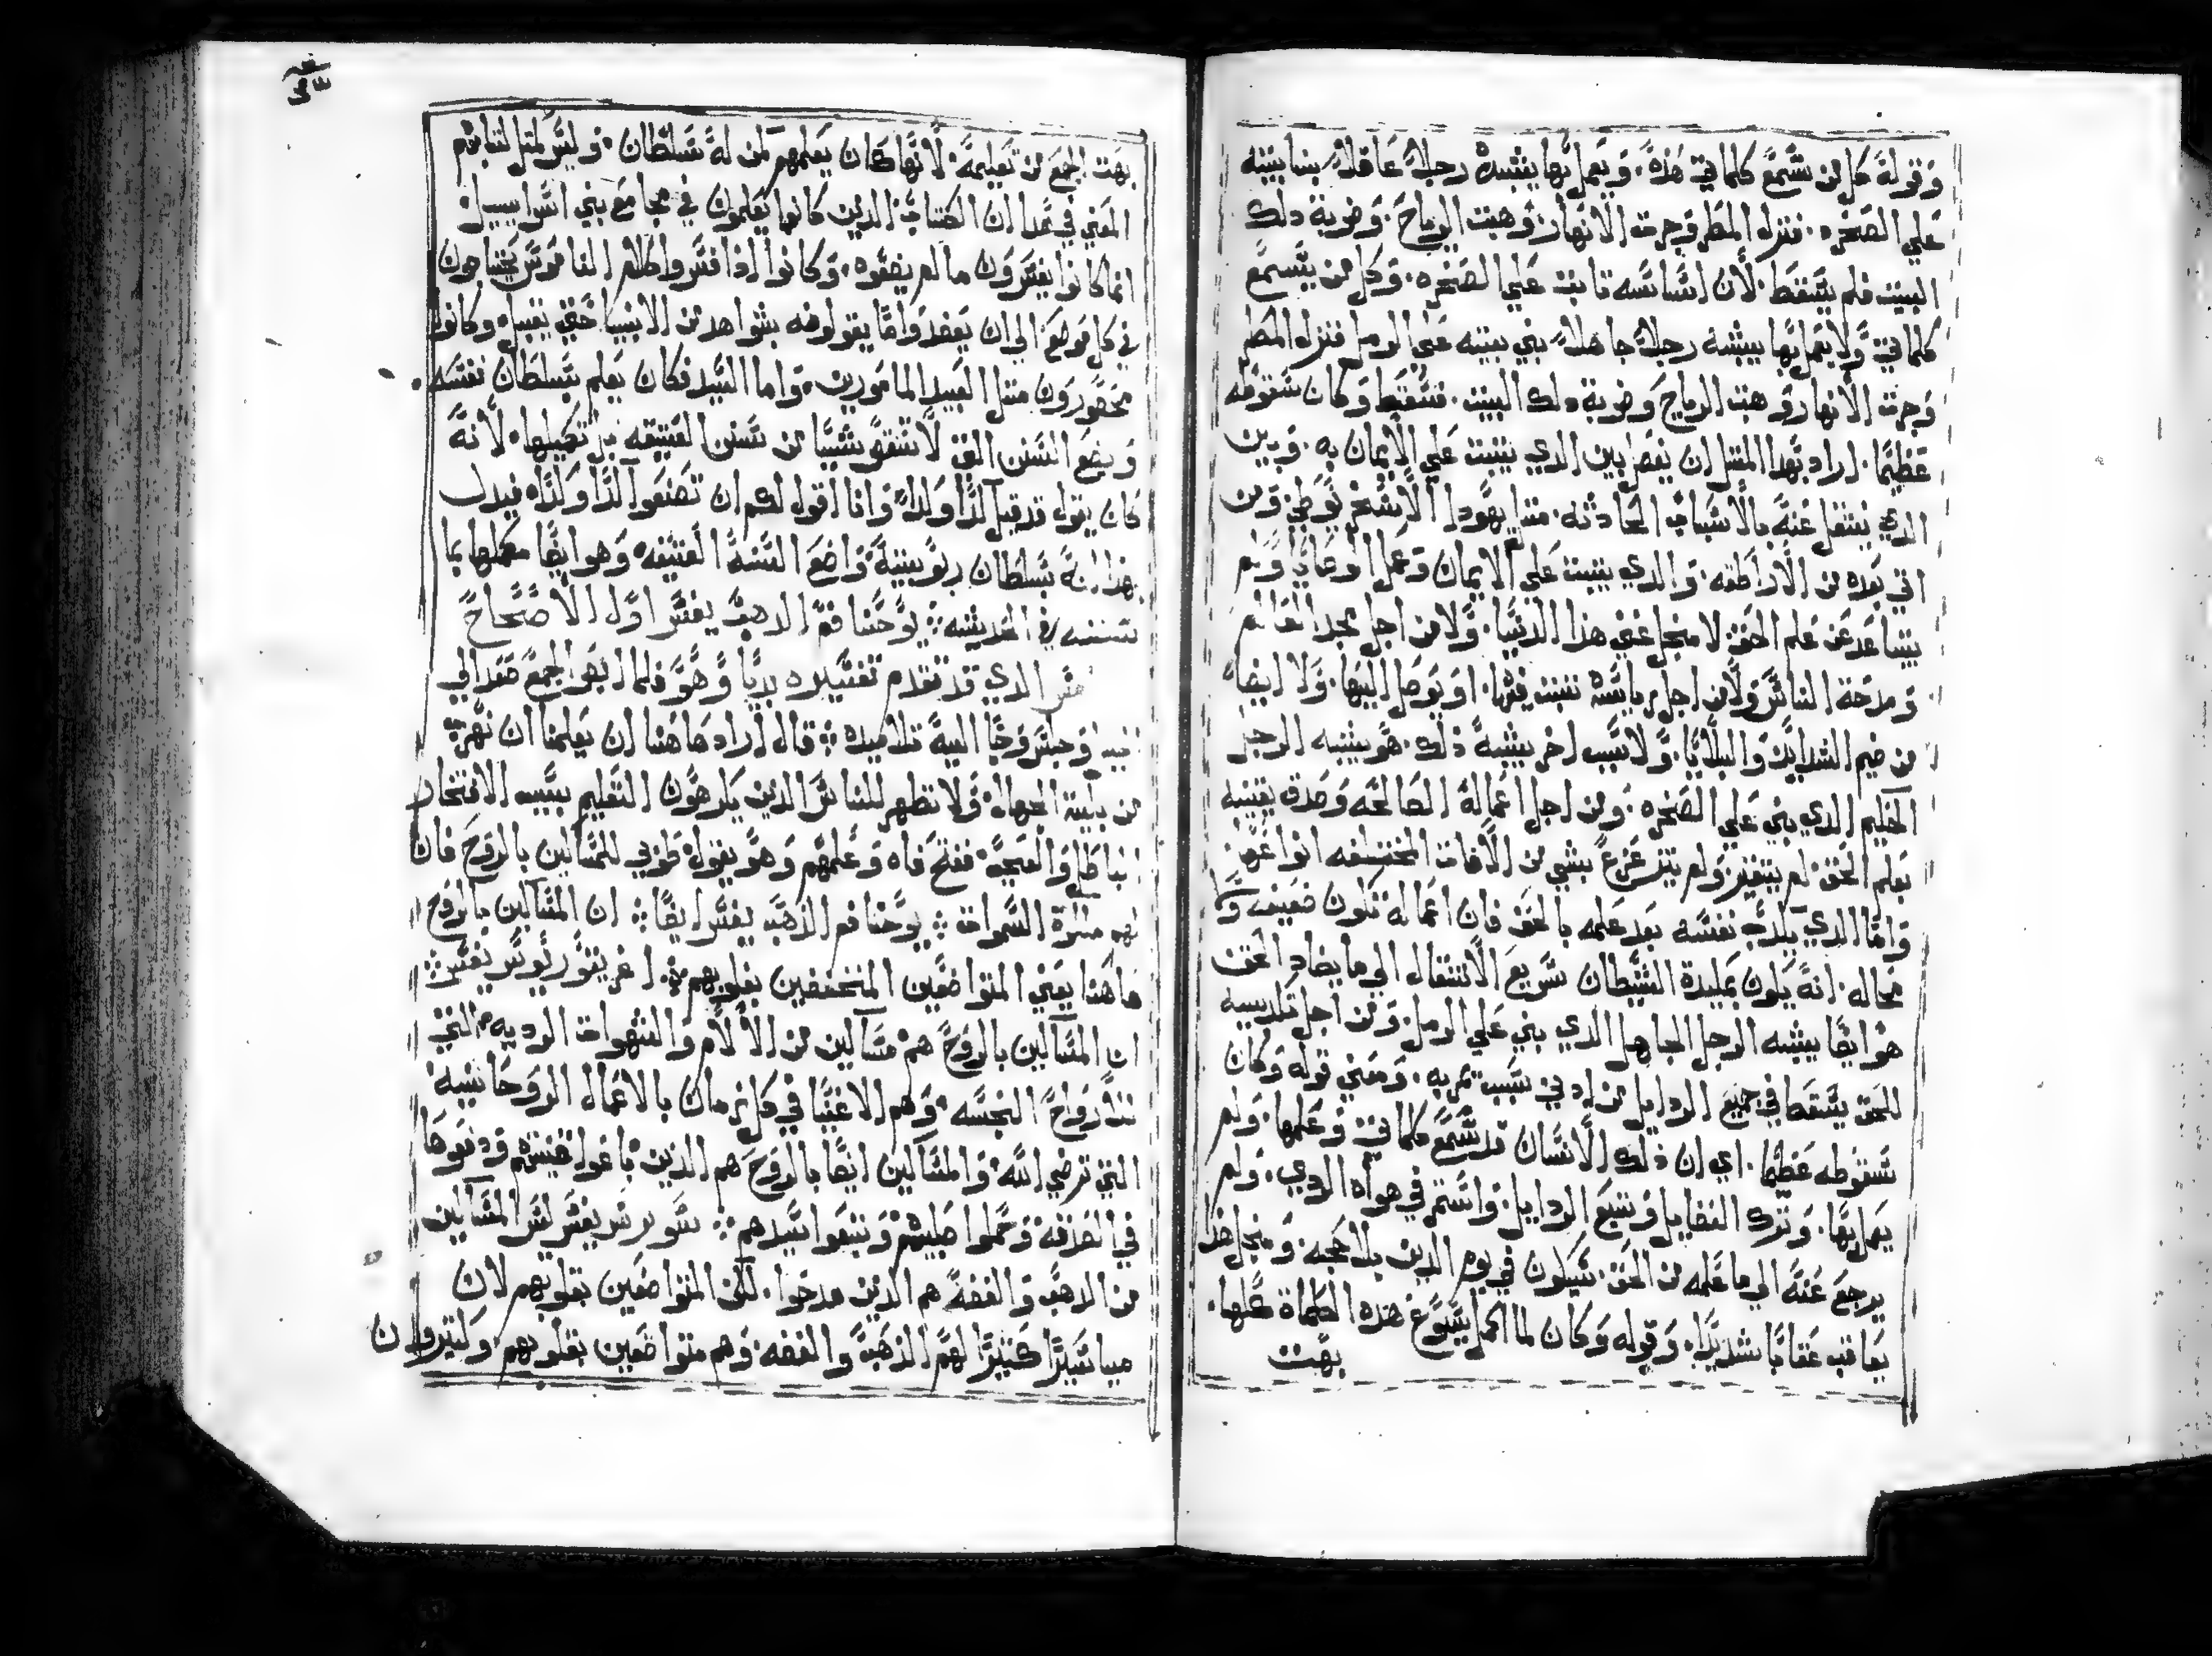 وقوله كل من سمع كلماتي هذه. ويعمل بها يشبه رجلا عاقلا بنا بيته
علي الصخره. فنزل المطر وجرت الانهار وهبت الرياح. وضربة دلك
البيت فلم يسقط. لان اساسه ثابت علي الصخره. وكل من يسمع
كلماتي ولا يعمل بها يشبه رجلا جاهلا بني بيته علي الرمل فنزل المطر
وجرت الانهار وهبت الرياح وضربة دلك البيت. فسقط وكان سقوطه
عظيما. اراد بهدا المثل ان يفصل بين الدي يثبت علي الايمان به. وبين
الدي ينتقل عنه بالاسباب الحادثه. مثل يهودا الاسخريوطي ومن
اتي بعده من الاراطقه. والدي يثبت علي الايمان وعمل الوصايا ولم
يتباعد عن علم الحق لا منجل غني هذا الدنيا. ولا من اجل مجد العالم
ومدحة الناس ولا من اجل رياسة تثبت فيها. او يوصل اليها. ولا ايضا
من ضيم الشدايد والبلايا. ولا سبب اخر يشبه ذلك. هو يشبه الرجل
الحليم الدي بني علي الصخره. ومن اجل اعماله الصالحه وصدق يقينه
بعلم الحق لم يتغير ولم يتزعزع بشي من الافات المختلفه انواعها.
واما الدي يلدب نفسه بعد علمه بالحق فان اعماله تلون ضعيفه وكل
محاله. انه يلون بمليدة الشيطان سريع الانتقال الي ما يضاد الحق
هو ايضا يشبه الرجل الجاهل الدي بني علي الرمل. ومن اجل تلديبه
للحق يسقط في جميع الردايل من ادني سبب تمر به. ومعني قوله وكان
سقوطه عظيما. اي ان ذلك الانسان قد سمع كلماتي وعلمها. ولم
يعمل بها. وترك الفضايل وتتبع الردايل. واستمر في هواه الردي. ولم
يرجع عنه الي ما علمه من الحق. سيلون في يوم الدين بلا حجه. ومنجل هدا
يعاقب عقابا شديدا. وقوله وكان لما اكمل يسوع هذه الكلماة كلها.
بهتت
بهت الجمع من تعليمه. لانها كان يعلمهم كمن له سلطان. وليس كمثل كتابهم
المعني في هدا ان الكتاب الدين كانوا يعلمون في مجامع بني اسراييل.
انما كانوا يفسرون ما لم يضعوه. وكانوا اذا فسروا كلام الناموس يحتاجون
في كل موضع الي ان يعضدوا ما يقولونه بشواهد من الانبيا حتي يقبل. وكانوا
محصورون مثل العبيد المامورين. واما السيد فكان يعلم بسلطان نفسه.
ويضع السنن التي لا تنقض شييا من سنن العتيقه بل تكملها. لانه
كان يقول قد قيل لدا ولدا. وانا اقول لكم ان تصنعوا لدا ولذا. فيدل
بهذا انه بسلطان ربوبيته واضع السنة العتيقه. وهو ايضا مكملها بما
سننه في الحديثه ∴ يوحنا فم الدهب يفسر اول الاصحاح
الدي قد تقدم تفسيره بديا وهو فلما ابصر الجمع صعد الي
وجلس وجا اليه تلاميده ∴ قال اراد هاهنا ان يعلمنا ان نهرب
من بلية الجهاله ولا تظهر للناس الدين يلرهون التعليم بسبب الافتخار
الباطل والعجب. ففتح فاه وعلمهم وهو يقول طوبي للمسالين بالروح فان
لهم ملكوة السموات ∴ يوحنا فم الذهب يفسر ايضا ∴ ان المسالين بالروح
هاهنا يعني المتواضعين المنخفضين بقلوبهم ∴ اغريغوريوس يفسر ∴
ان المسالين بالروح هم مسالين من الالام والشهوات الرديه التي
للارواح النجسه. وهم الاغنيا في كل زمان بالاعمال الروحانيه
التي ترضي الله. والمسالين ايضا بالروح هم الذين باعوا قنيتهم ودفعوها
في الصدقه وحملوا صليبهم وتبعوا سيدهم ∴ سويرس يفسر ليس المسالين
من الدهب والفضه هم الدين مدحوا. للن المتواضعين بقلوبهم لان
مياسيرا كثيرا لهم الذهب والفضه. وهم متواضعين بقلوبهم. ولتيرون